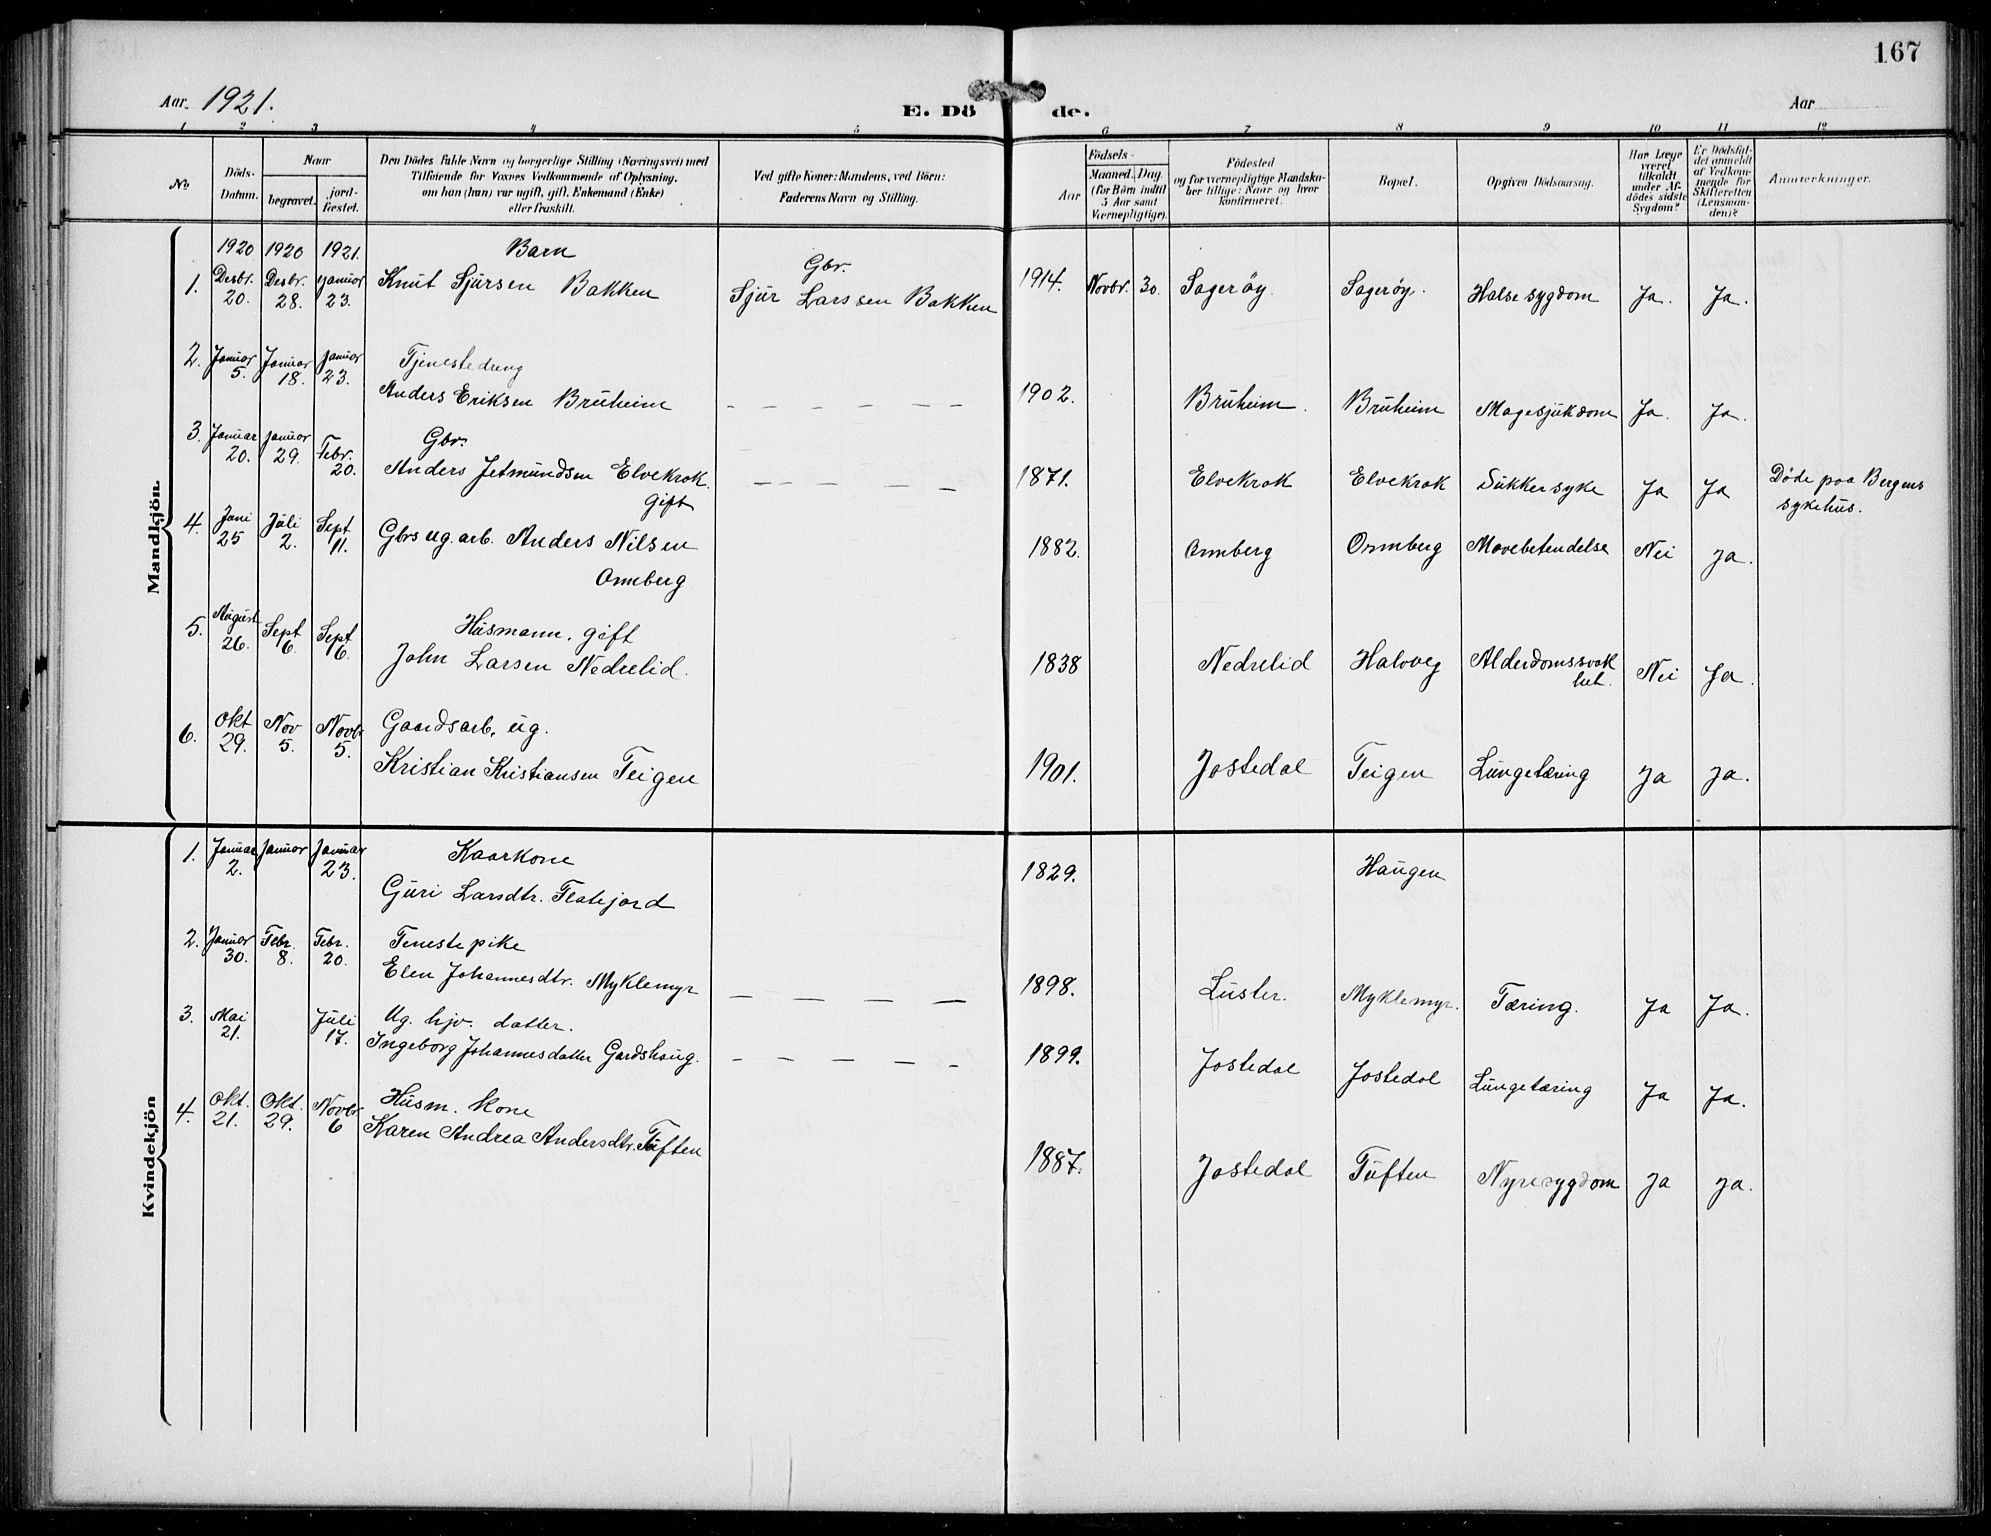 167
Aar 1921.
E. Dö
de.
Aar
1 2 3 4 5 6 7 8 9 10 11 12
No.
Döds-Datum.
Naar
begravet.
jord-fæstet.
Den Dödes fulde Navn og borgerlige Stilling (Næringsvei) med
Tilföiende for Voxnes Vedkommende af Oplysning,
om han (hun) var ugift, gift, Enkemand (Enke)
eller fraskilt.
Ved gifte Koner: Mandens, ved Börn:
Faderens Navn og Stilling.
Födsels-
Aar
Maaned. Dag.
(for Börn indtil
5 Aar samt
Værnepligtige).
Födested
og for værnepligtige Mandska-
ber tillige: Naar og hvor
konfirmeret.
Bopæl.
Opgiven Dödsaarsag.
Har Læge
været
tilkaldt
under Af-
dödes sidste
Sygdom?
Er Dödsfal-
det anmeldt
af Vedkom-
mende for
Skifteretten
(Lensman-
den)?
Anmærkninger.
Mandkjön.
1920 1920 1921. Barn
1. Desbr. 20. Desbr. 28. Januar 23. Knut Sjursen Bakken
Gbr.
Sjur Larssen Bakken
1914. Novbr. 30. Sagerøy. Sagerøy. Halsesygdom Ja. Ja.
2. Januar 5. Januar 18. Januar 23. Tjenestedreng
Anders Eriksen Bruheim
1902. Bruheim. Bruheim Magesjukdom Ja. Ja.
3. Januar 20. Januar 29. Febr. 20. Gbr.
Anders Jetmundsen Elvekrok.
gift
1871. Elvekrok Elvekrok Sukkersyke Ja Ja Døde paa Bergens
sykehus.
4. Juni 25 Juli 2. Sept 11. Gbrs ug. arb. Anders Nilsen
Ormberg
1882. Ormberg Ormberg Mavebetendelse Nei Ja.
5. August 26. Sept 6. Sept 6. Husmann, gift
John Larsen Nedrelid.
1838 Nedrelid Haloveg Alderdomssvak
het. Nei Ja.
6. Okt 29. Nov 5. Novbr 5. Gaardsarb, ug.
Kristian Kristiansen Teigen
1901. Jostedal Teigen Lungetæring Ja Ja.
Kvindekjön
1. Januar 2. Januar Januar 23. Kaarkone
Guri Larsdtr. Flatejord
1829. Haugen
2. Januar 30. Febr. 8. Febr. 20. Tenestepike
Elen Johannesdtr. Myklemyr
1898. Luster. Myklemyr. Tæring. Ja Ja.
3. Mai 21. Juli 17. Ug. hjv. datter.
Ingeborg Johannesdatter Gardshaug.
1899. Jostedal Jostedal Lungetæring Ja Ja.
4. Okt. 21. Okt. 29. Novbr 6 Husm. kone
Karen Andrea Andersdtr. Tuften
1887. Jostedal Tuften Nyresygdom Ja Ja.